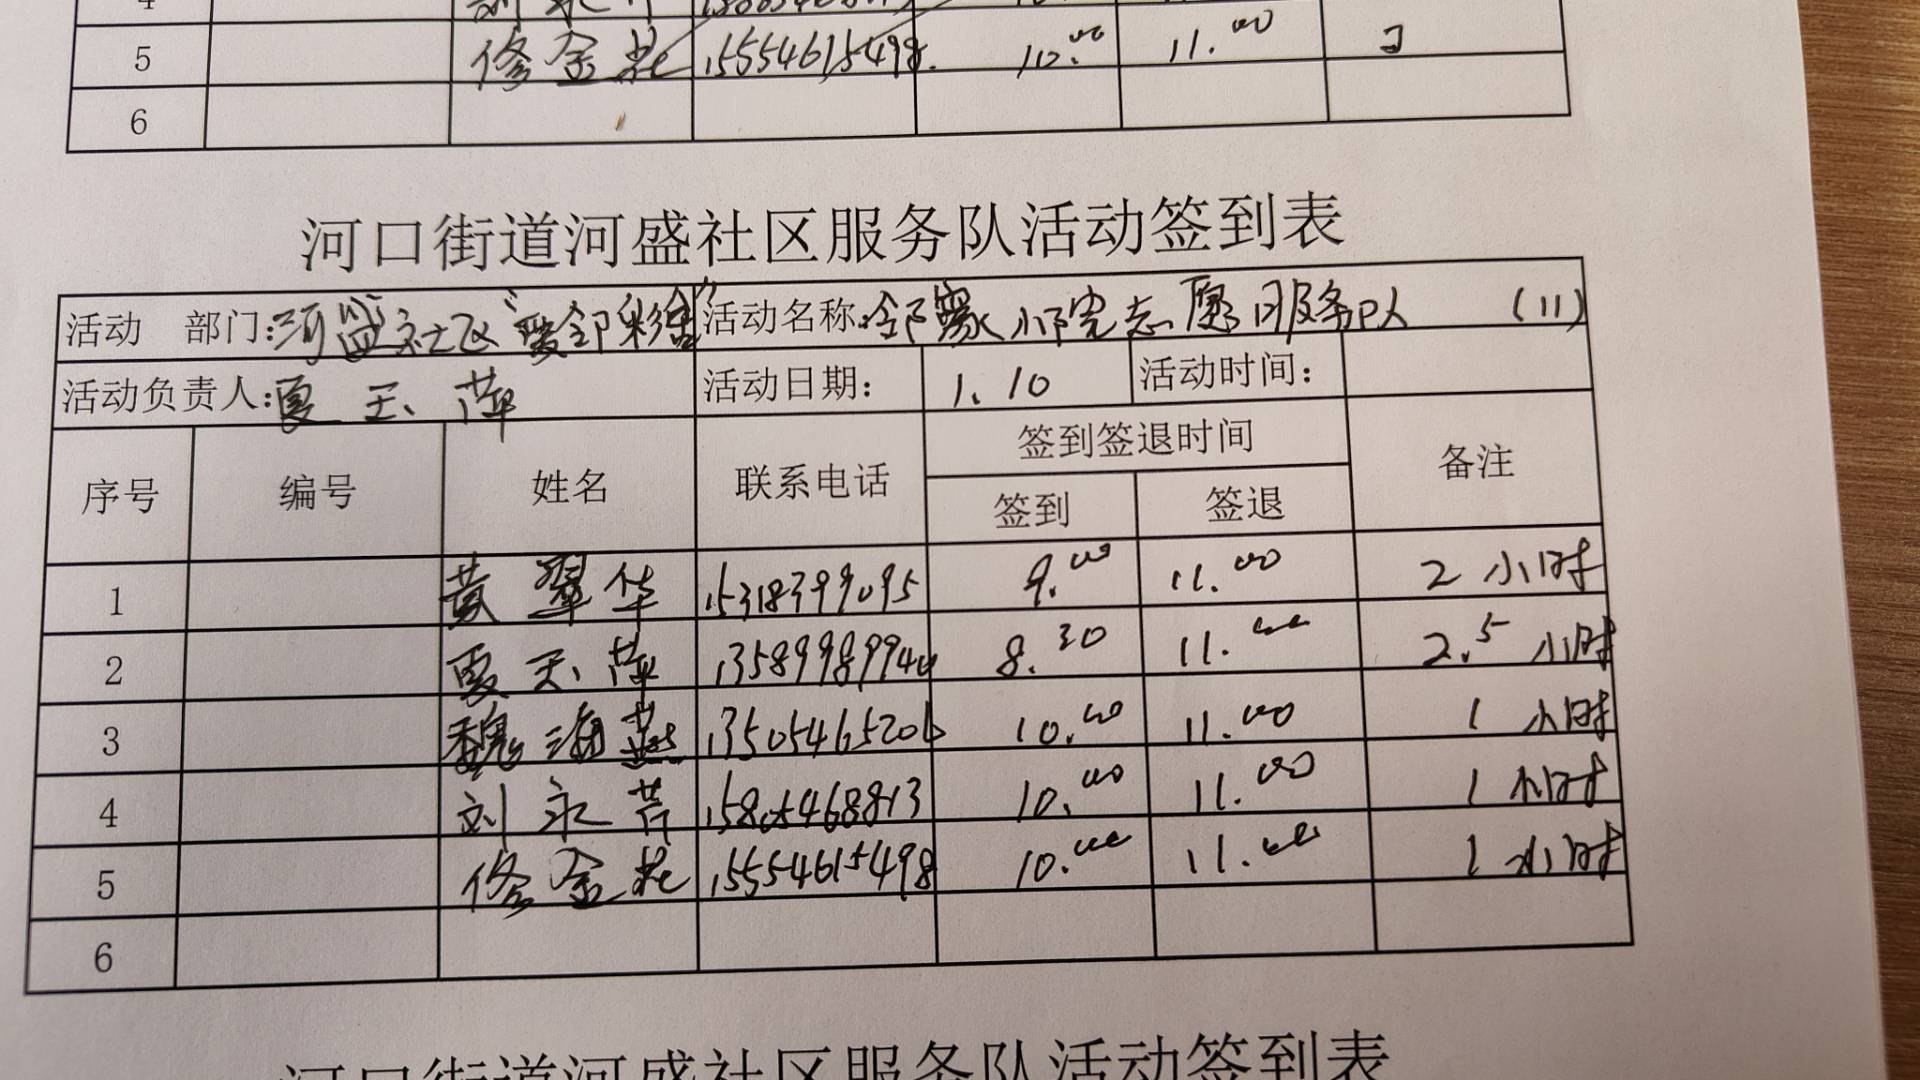 4 刘永
5 修金花 15554615498 10.00 11.00
6
河口街道河盛社区服务队活动签到表
活动 部门:河盛社区“爱邻彩 ” 活动名称:邻家小院志愿服务队 (11)
活动负责人:夏玉萍 活动日期: 1.10 活动时间:
序号 编号 姓名 联系电话 签到签退时间 备注
签到 签退
1 黄翠华 15318399095 9.00 11.00 2小时
2 夏玉萍 13589989944 8.30 11.00 2.5小时
3 魏海燕 13505465206 10.00 11.00 1小时
4 刘永芹 15805468813 10.00 11.00 1小时
5 修金花 15554615498 10.00 11.00 1小时
6
河口街道河盛社区服务队活动签到表